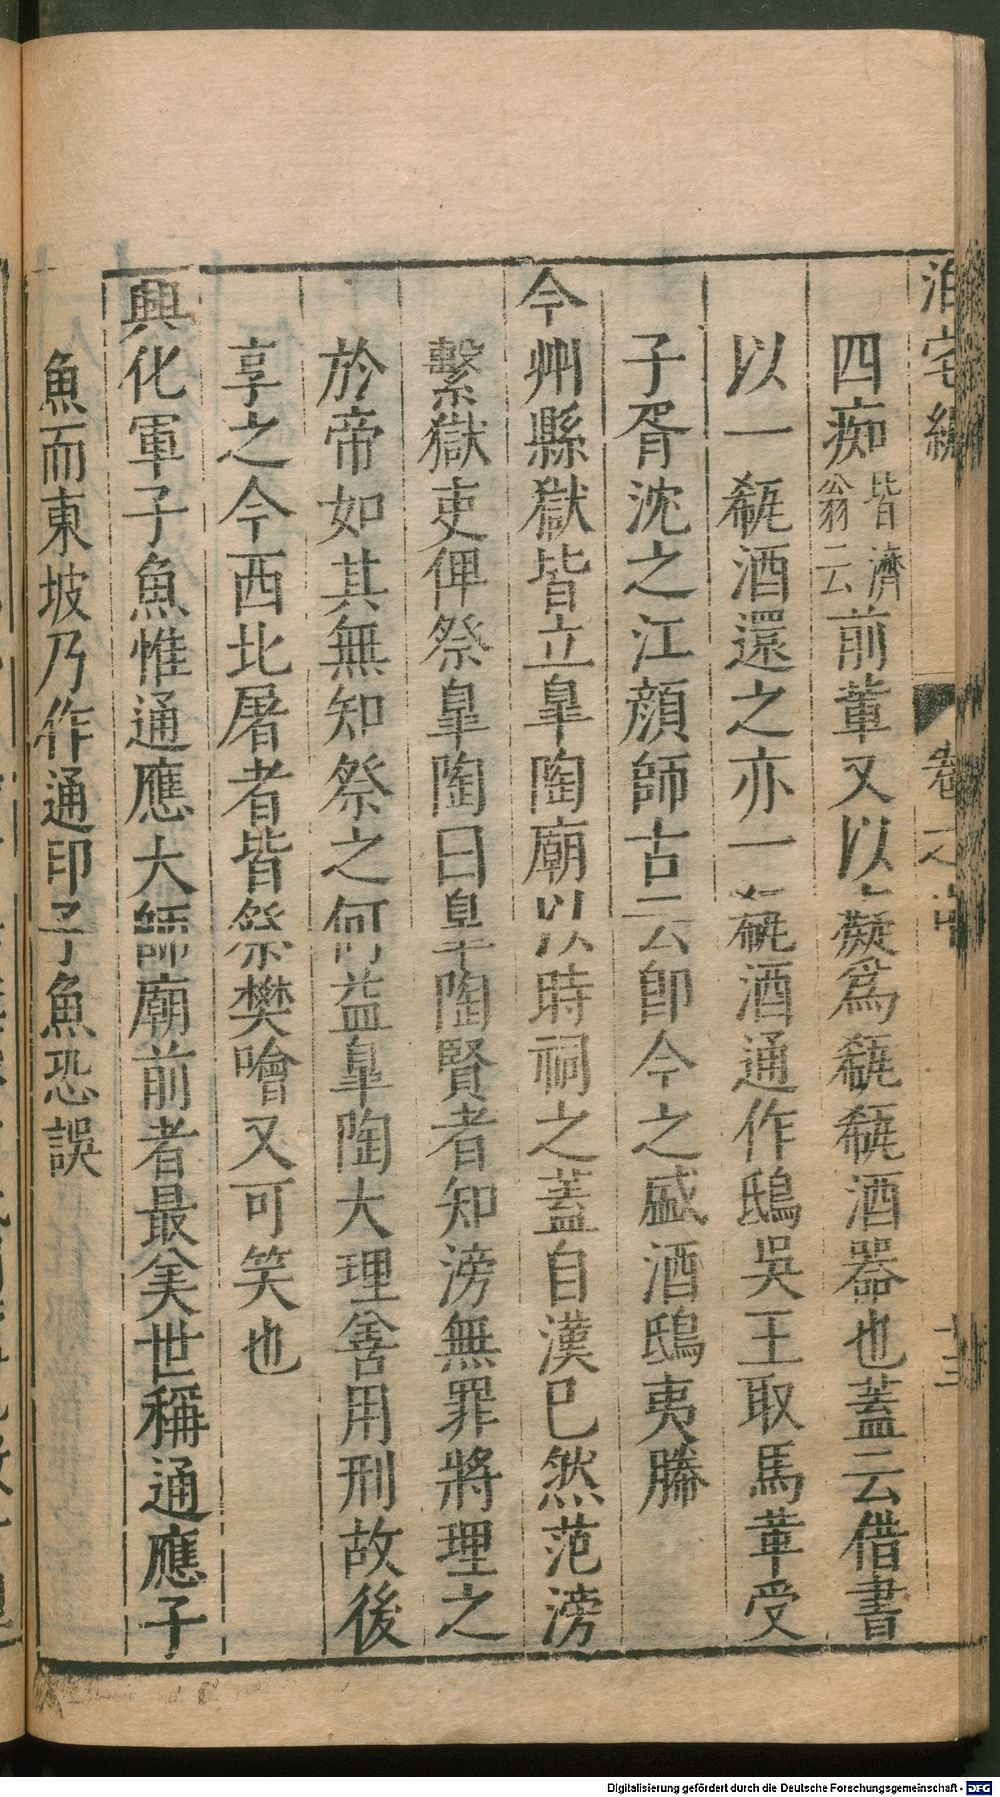 泊宅編 卷之中 十三
四痴皆濟翁云前輩又以癡爲瓻瓻酒器也蓋云借書
以一瓻酒還之亦一瓻酒通作鴟吳王取馬革受
子胥沈之江顔師古云卽今之盛酒鴟夷幐
今州縣獄皆立臯陶廟以時祠之蓋自漢已然范滂
繫獄吏俾祭臯陶曰臯陶賢者知滂無罪將理之
於帝如其無知祭之何益臯陶大理善用刑故後
享之今西北屠者皆祭樊噲又可笑也
興化軍子魚惟通應大師廟前者最美世稱通應子
魚而東坡乃作通印子魚恐誤
Digitalisierung gefördert durch die Deutsche Forschungsgemeinschaft - DFG